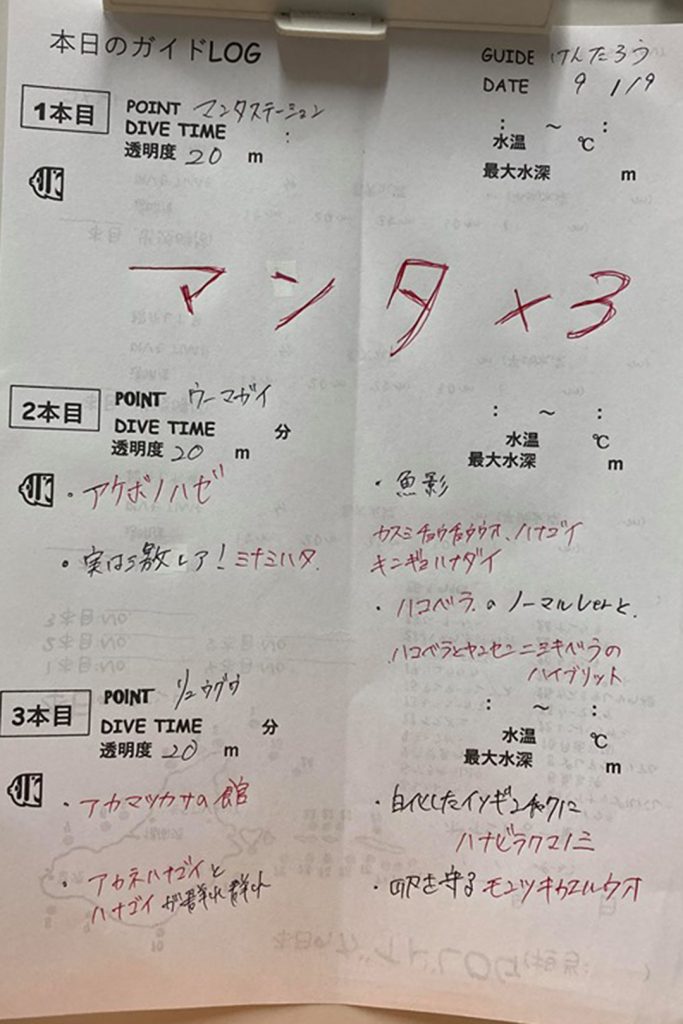 本日のガイドLOG
GUIDE けんたろう
DATE 9 1/9
1本目
POINT マンタステーション
DIVE TIME :
: ～ :
透明度 20 m
水温 ℃
最大水深 m
マンタ×3
2本目
POINT ウーマガイ
DIVE TIME 分
: ～ :
透明度 20 m
水温 ℃
最大水深 m
・アケボノハゼ
・実は激レア！ミナミハタ.
・魚影
カスミチョウチョウウオ、ハナゴイ
キンギョハナダイ
・ハコベラ.のノーマルverと、
ハコベラとヤンセンニシキベラの
ハイブリット
3本目
POINT リュウグウ
DIVE TIME 分
: ～ :
透明度 20 m
水温 ℃
最大水深 m
・アカマツカサの館
・アカネハナゴイと
ハナゴイが群れ群れ
・白化したイソギンチャクに
ハナビラクマノミ
・卵を守るモンツキカエルウオ